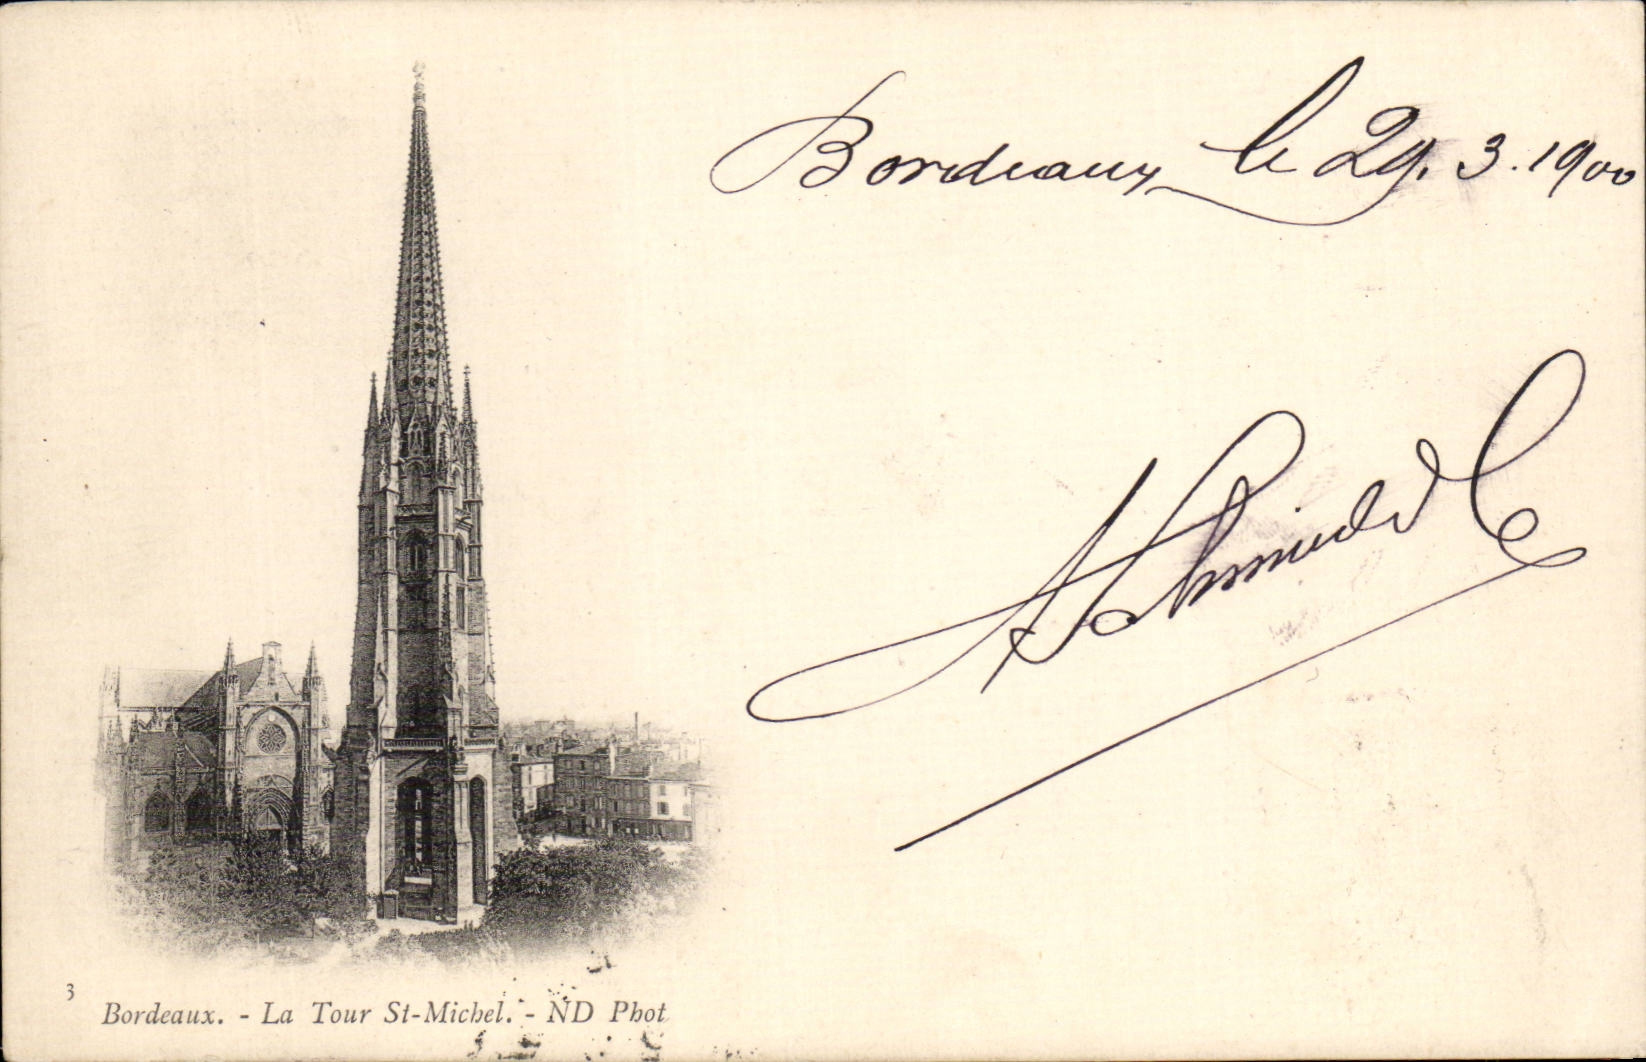 Bordeaux le 29. 3. 1900
A Schmidt
3
Bordeaux. - La Tour St-Michel. - ND Phot